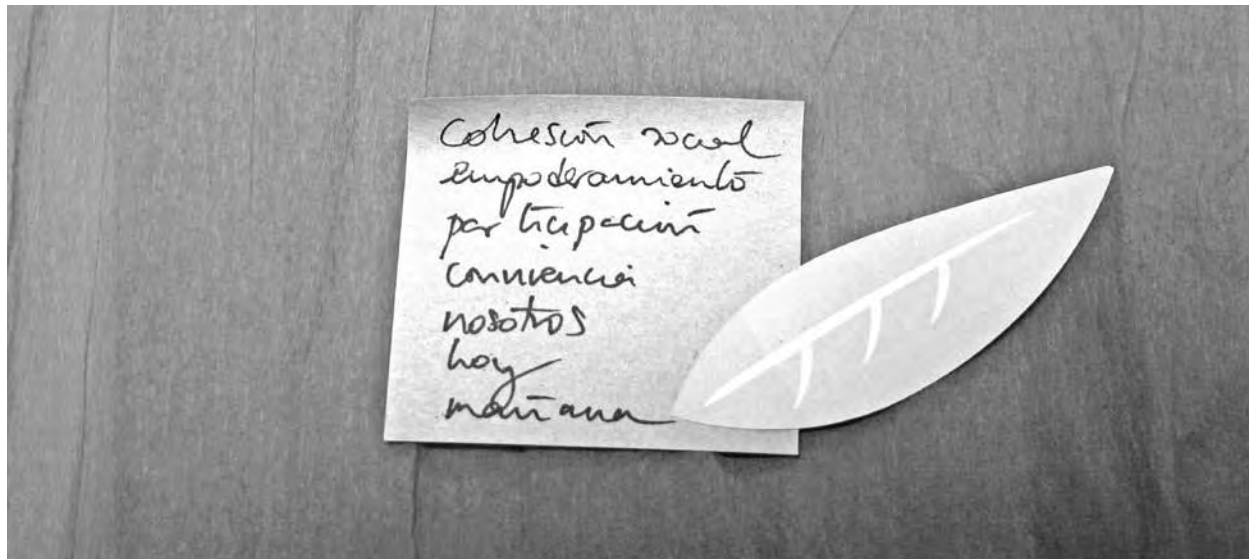 Cohesión social
empoderamiento
participación
convivencia
nosotros
hoy
mañana